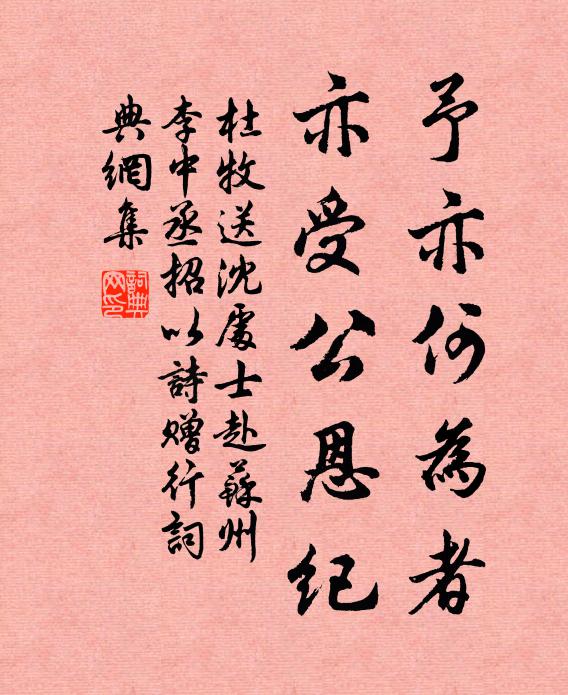 予亦何為者
亦受公恩紀
杜牧送沈處士赴蘇州
李中丞招以詩贈行詞
典網集
詞典
网印